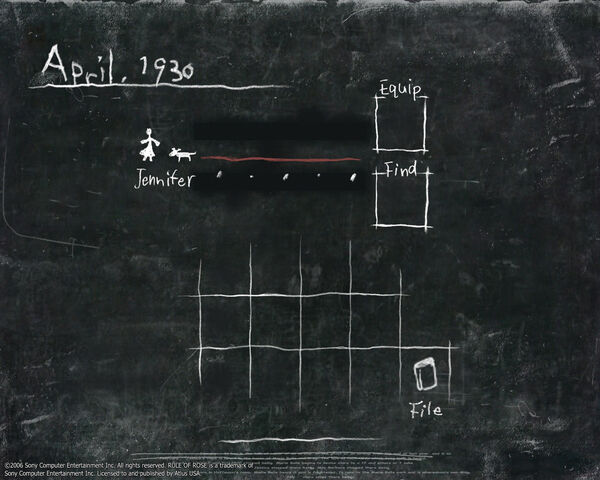 April. 1930
Equip
Find
Jennifer
File
©2006 Sony Computer Entertainment Inc. All rights reserved. RULE OF ROSE is a trademark of
Sony Computer Entertainment Inc. Licensed to and published by Atlus USA.